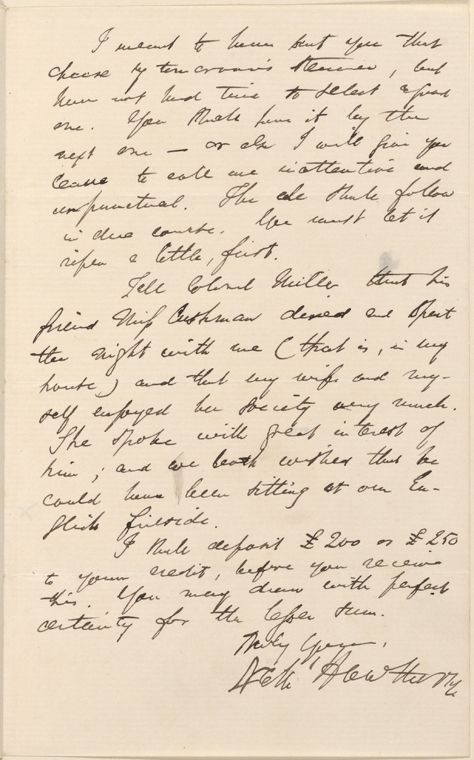 I meant to have sent you that
cheese by tomorrow's steamer, but
have not had time to select a good
one. You shall have it by the
next one — or else I will give you
leave to call me inattentive and
unpunctual. The ale shall follow
in due course. We must let it
ripen a little, first.
Tell Colonel Miller that his
friend Miss Cushman dined and spent
the night with me (that is, in my
house) and that my wife and my-
self enjoyed her society very much.
She spoke with great interest of
him; and we both wished that he
could have been sitting at our En-
glish fireside.
I shall deposit £200 or £250
to your credit, before you receive
this. You may draw with perfect
certainty for the lesser sum.
Truly Yours,
Nath Hawthorne